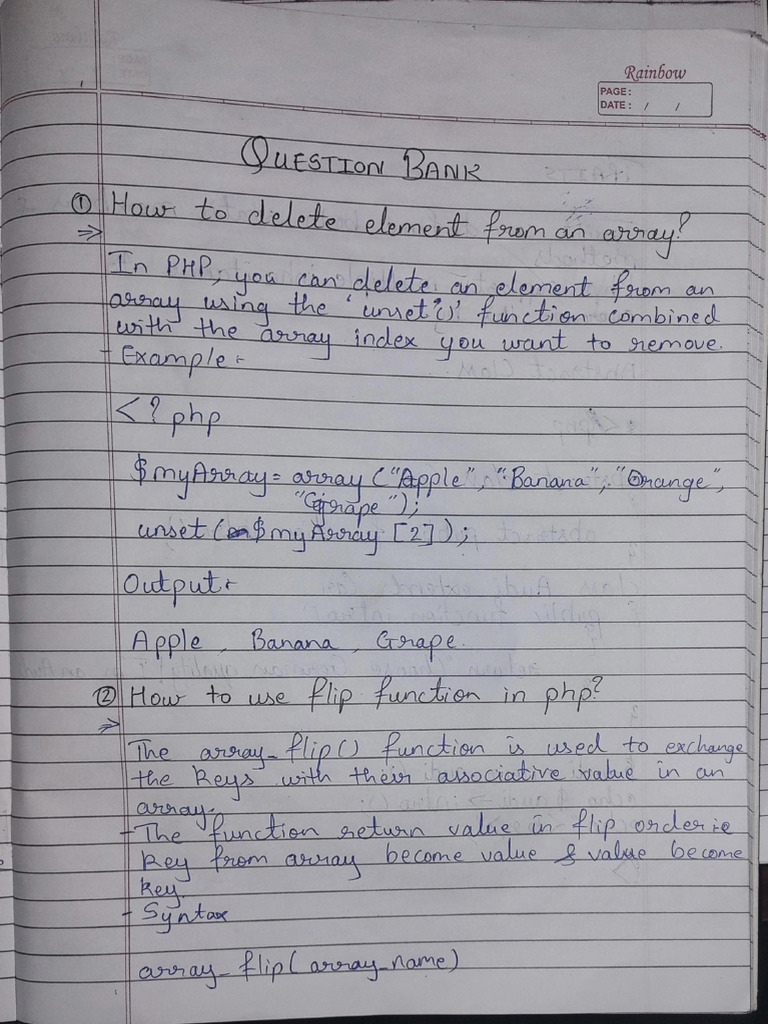 Rainbow
PAGE:
DATE: / /
QUESTION BANK
① How to delete element from an array?
⇒
In PHP, you can delete an element from an
array using the 'unset()' function combined
with the array index you want to remove.
- Example:-
<?php
$myArray = array ("Apple", "Banana", "Orange",
"Grape");
unset ($myArray [2]);
Output:-
Apple, Banana, Grape.
② How to use flip function in php?
⇒
The array_flip() function is used to exchange
the keys with their associative value in an
array.
- The function return value in flip order i.e
key from array become value & value become
key.
- Syntax
array_flip(array_name)